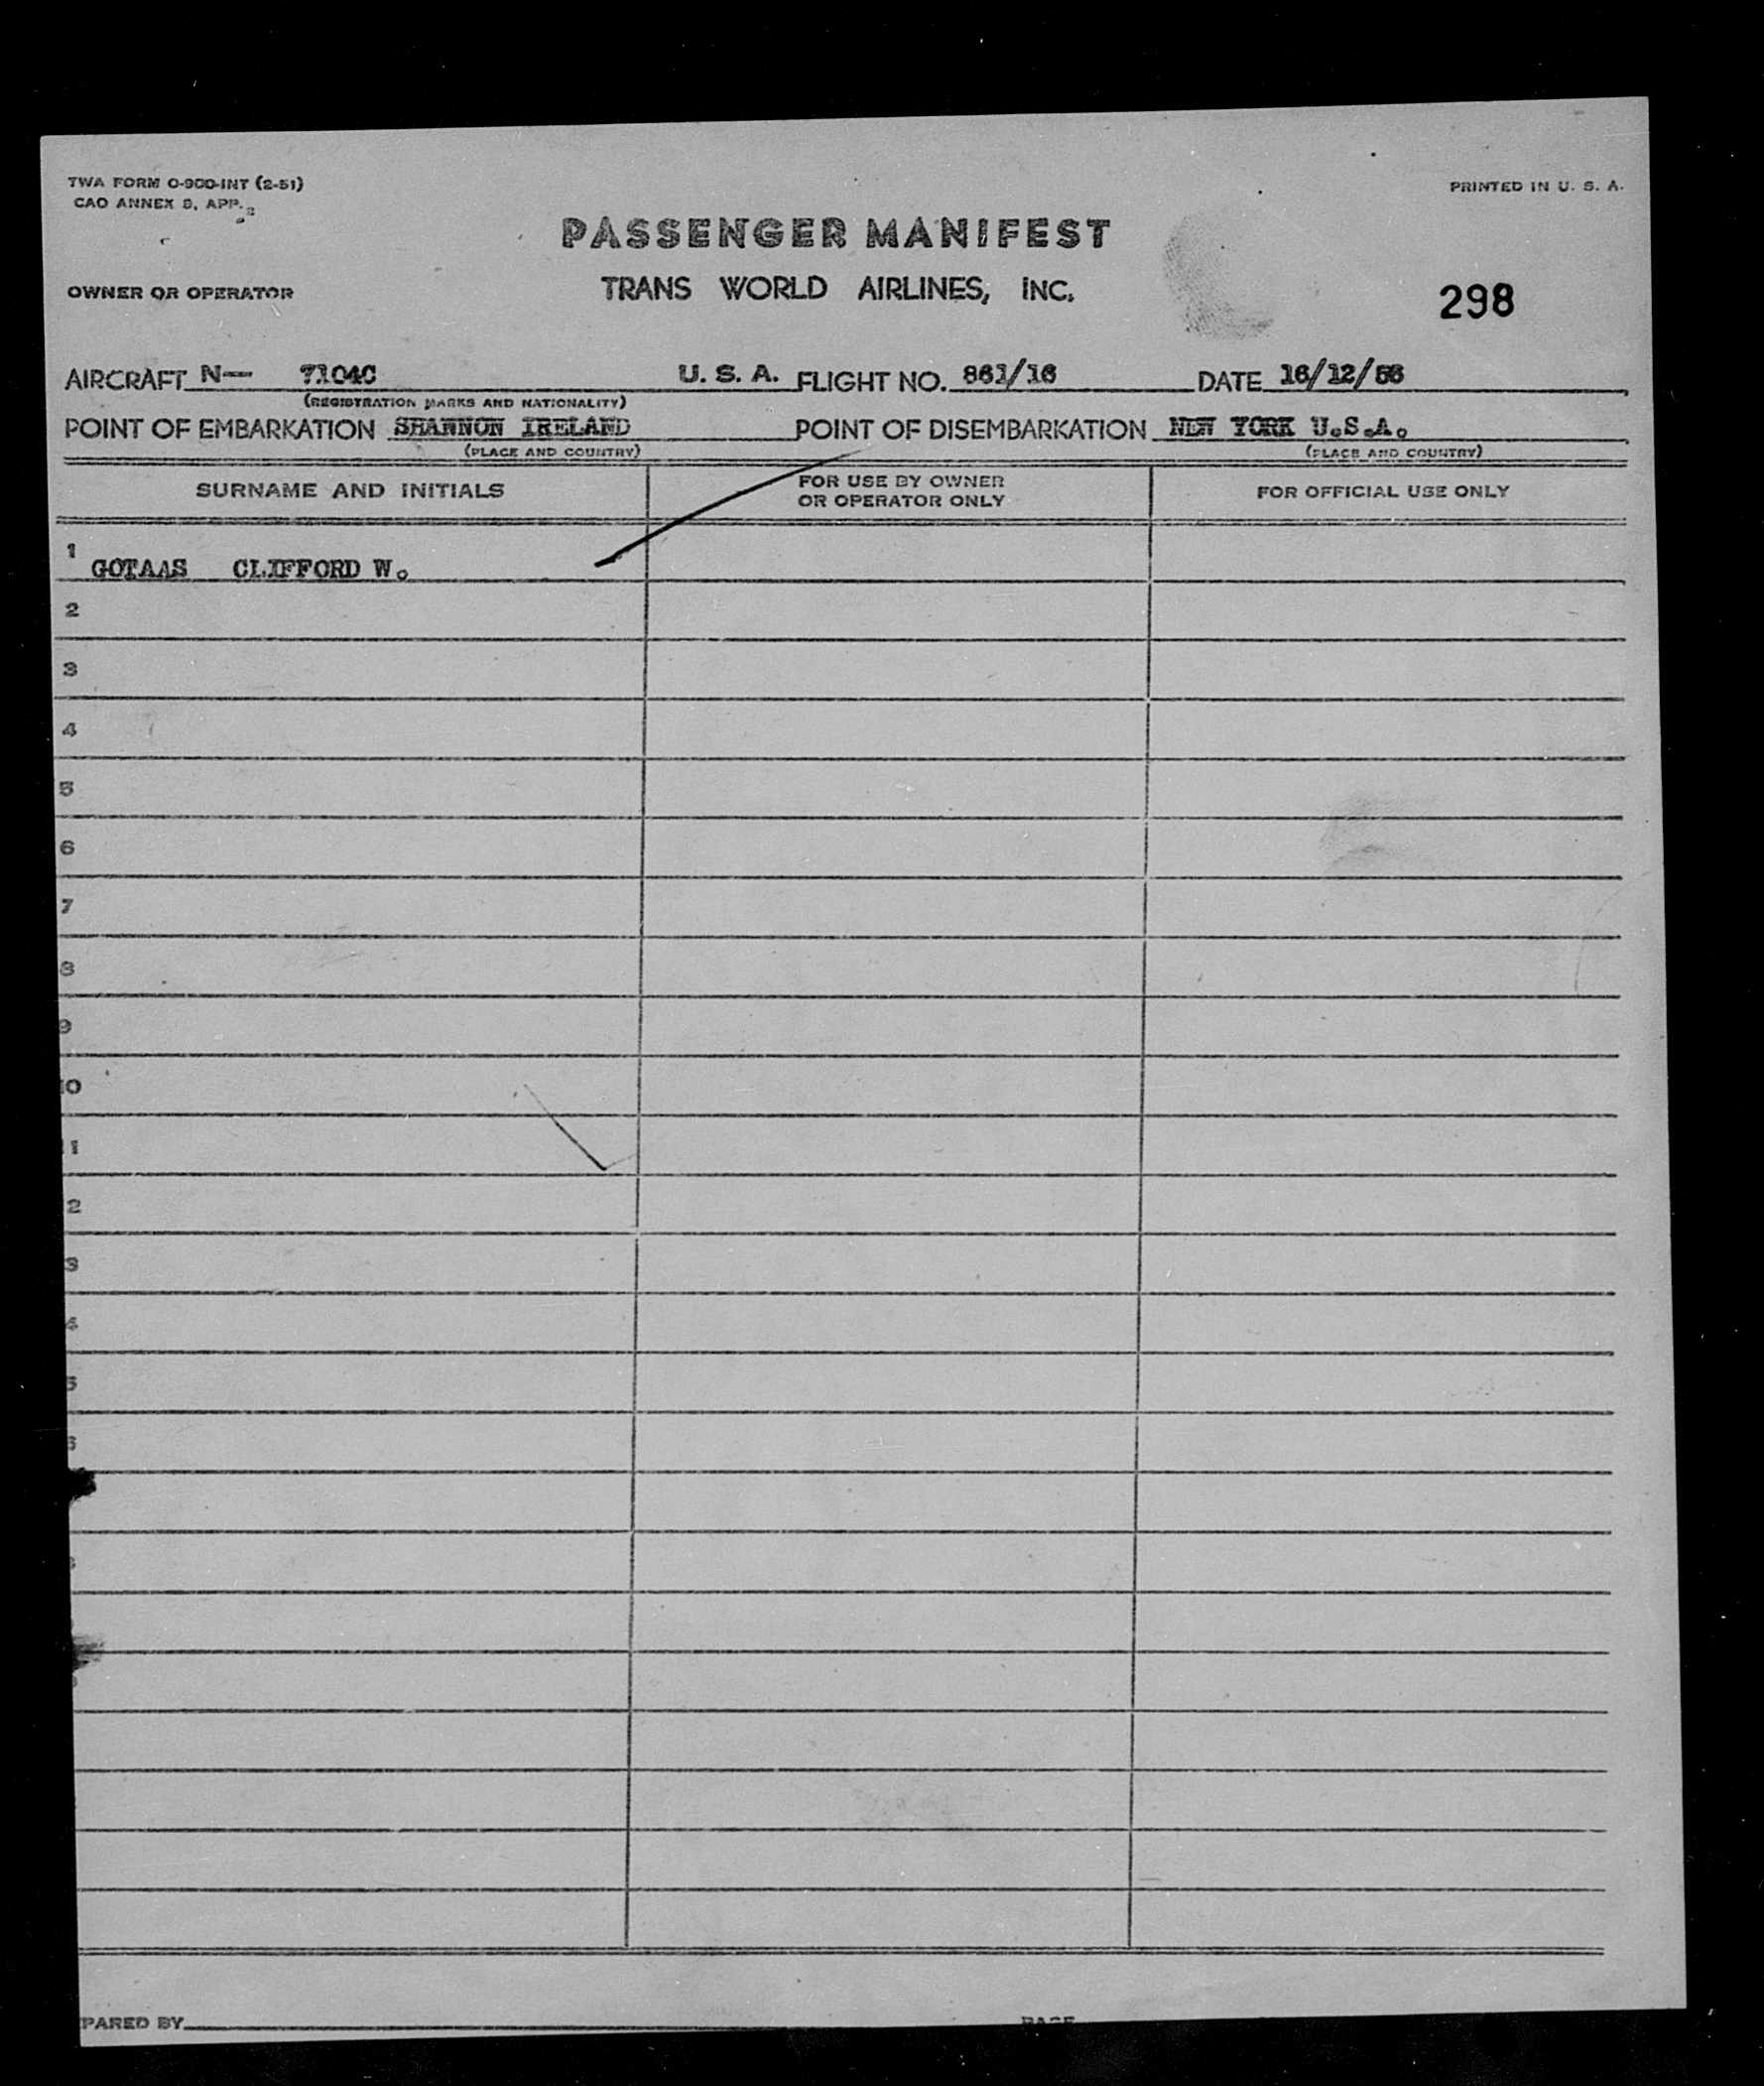 TWA FORM O-900-INT (2-51)
PRINTED IN U. S. A.
CAO ANNEX 9, APP. 2
PASSENGER MANIFEST
OWNER OR OPERATOR TRANS WORLD AIRLINES, INC.
298
AIRCRAFT N— 7104C U. S. A. FLIGHT NO. 861/16 DATE 16/12/56
(REGISTRATION MARKS AND NATIONALITY)
POINT OF EMBARKATION SHANNON IRELAND POINT OF DISEMBARKATION NEW YORK U.S.A.
(PLACE AND COUNTRY) (PLACE AND COUNTRY)
SURNAME AND INITIALS FOR USE BY OWNER OR OPERATOR ONLY FOR OFFICIAL USE ONLY
1 GOTAAS CLIFFORD W.
2
3
4
5
6
7
8
9
10
11
2
3
4
5
6
PARED BY PAGE